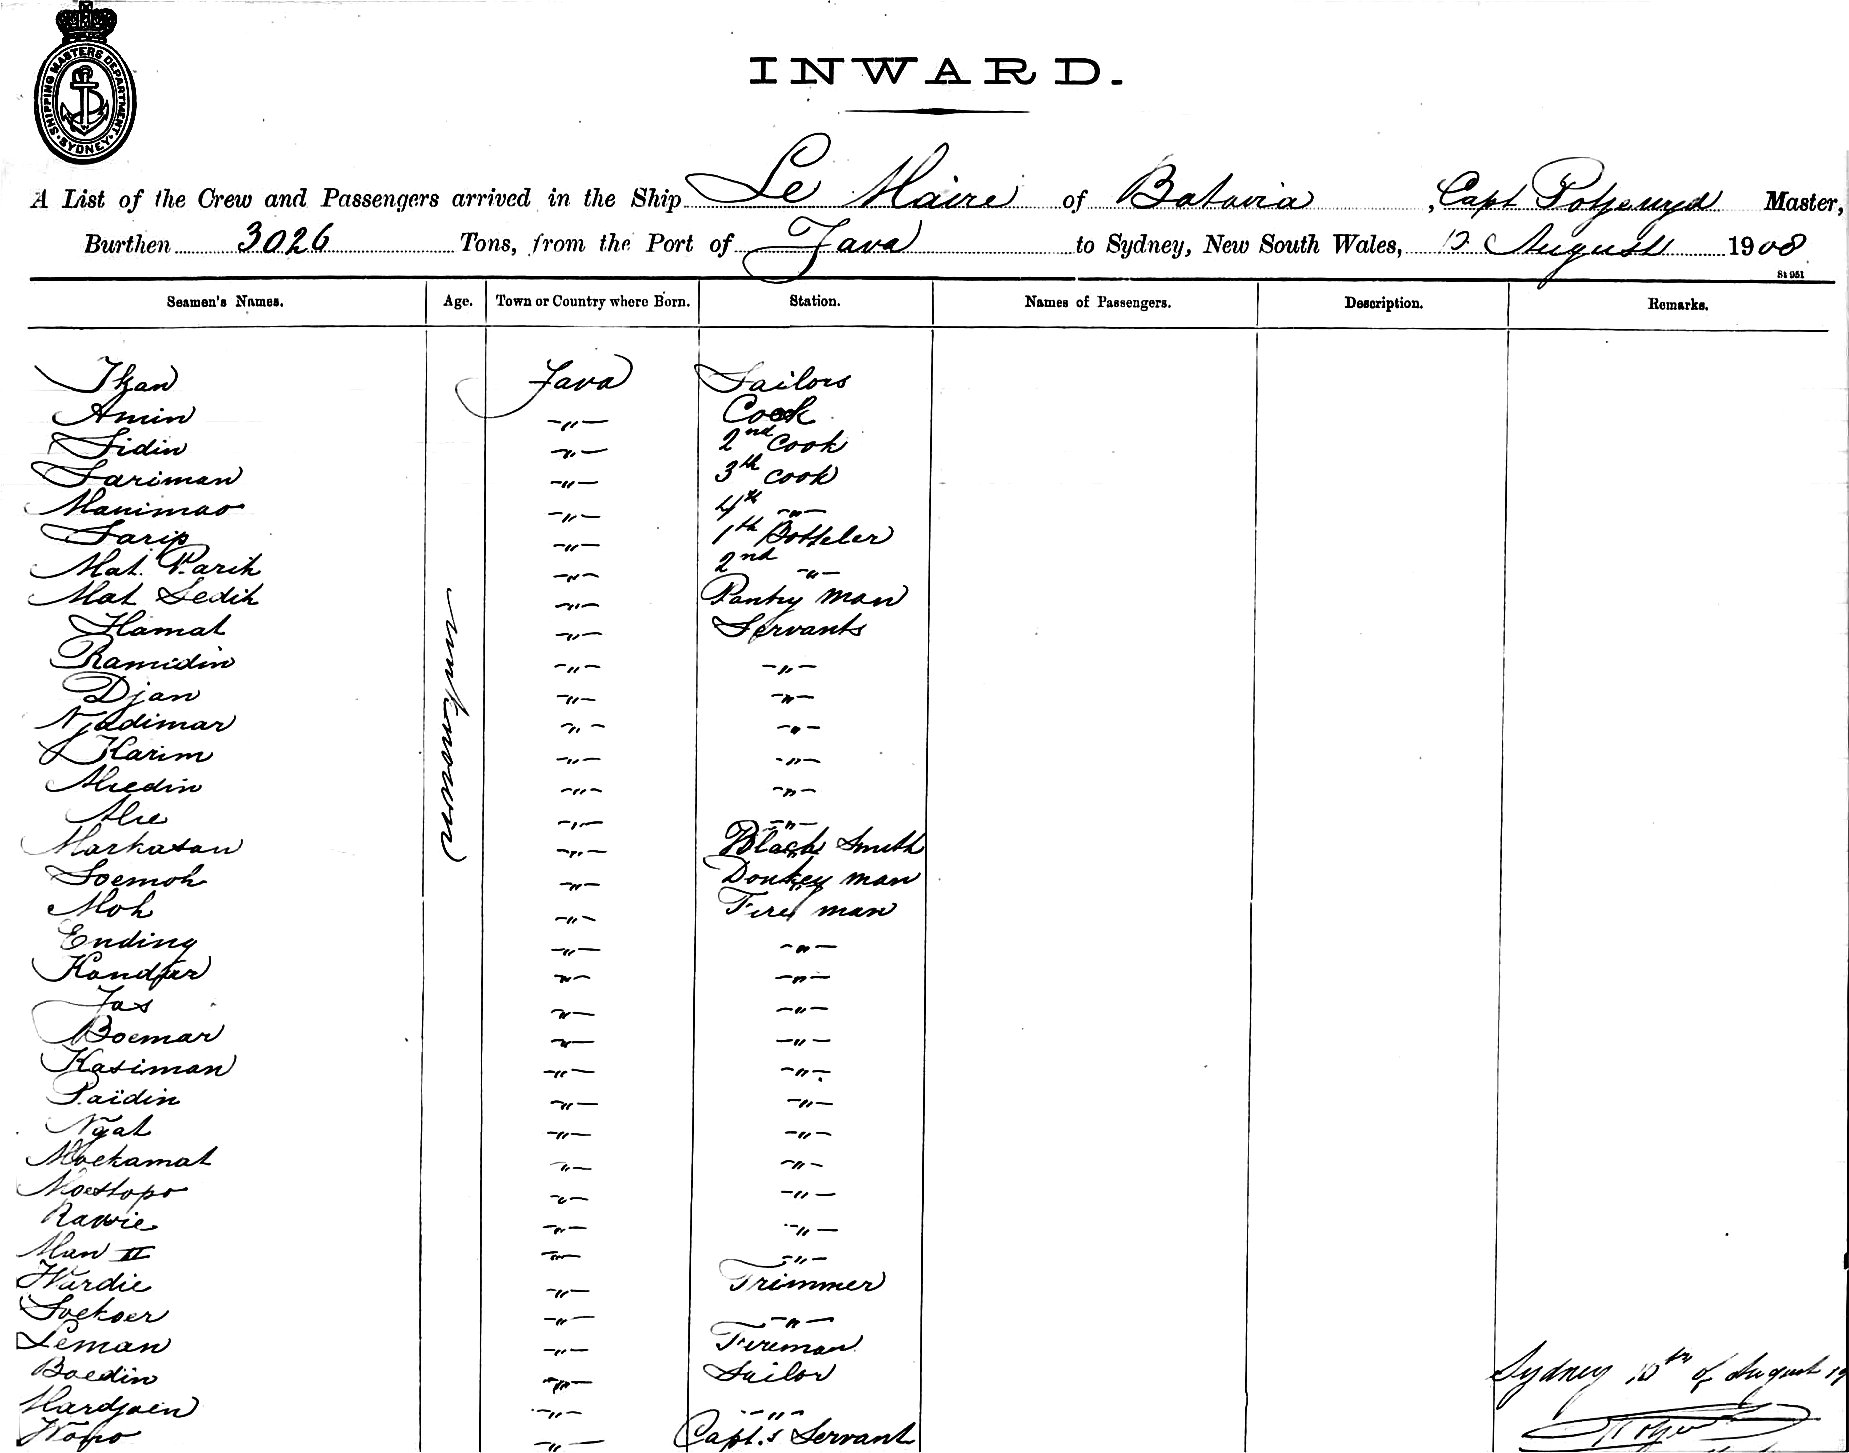 SHIPPING MASTERS DEPARTMENT. SYDNEY
INWARD.
A List of the Crew and Passengers arrived in the Ship Le Maire of Batavia, Capt Master,
Burthen 3026 Tons, from the Port of Java to Sydney, New South Wales, August 1908
St 951
Seamen's Names. Age. Town or Country where Born. Station. Names of Passengers. Description. Remarks.
Java Sailors
Amin -"- Cook
Sidin -"- 2nd Cook
Sariman -"- 3th cook
-"- 4th -"-
Sarip -"- 1th Botteler
Mat Parik -"- 2nd -"-
Mat Sedik -"- Pantry man
Hamat -"- Servants
Ramidin -"- -"-
Djan -"- -"-
Njadimar -"- -"-
Karim -"- -"-
Aliedin -"- -"-
Alie -"- -"-
unknown
Markasan -"- Black Smith
Soemoh -"- Donkey man
Moh -"- Fire man
Ending -"- -"-
-"- -"-
Jas -"- -"-
Boemar -"- -"-
Kasiman -"- -"-
Païdin -"- -"-
Ngat -"- -"-
Moekamat -"- -"-
Moestopo -"- -"-
Rawie -"- -"-
Man II -"- -"-
Wardie -"- Trimmer
Soekoer -"- -"-
Leman -"- Fireman
Boedin -"- Sailor
Mardjoen -"- -"-
-"- Capt.s Servant
Sydney of August 19